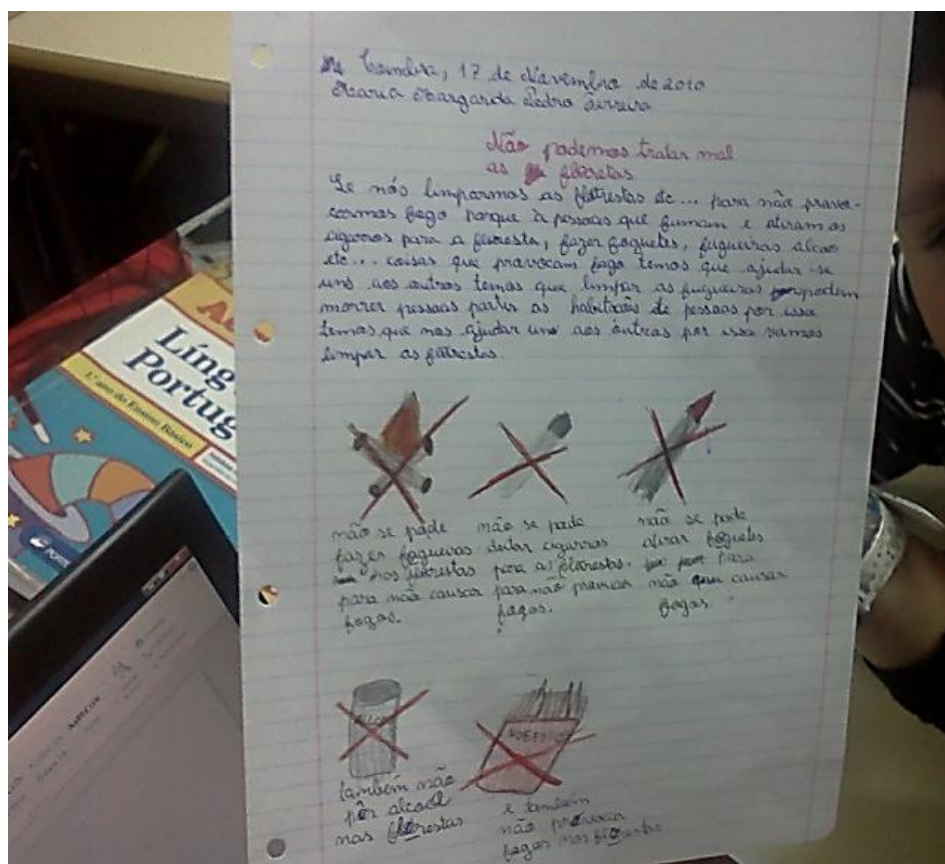 Coimbra, 17 de Novembro de 2010
Maria Margarida Pedro Ferreira
Não podemos tratar mal
as floretas
Se nós limparmos as florestas etc... para não provo-
carmos fogo porque à pessoas que fumam e atiram os
cigarros para a floresta, fazer foguetes, fugueiras alcool
etc... coisas que provocam fogo temos que ajudar-se
uns aos outros temos que limpar as fugueiras podem
morrer pessoas partir as habitações de pessoas por isso
temos que nos ajudar uns aos outros por isso vamos
limpar as florestas.
não se pode
fazer fogueiras
nas florestas
para não causar
fogos.
não se pode
deitar cigarros
para as florestas.
para não provocar
fogos.
não se pode
atirar foguetes
para
não causar
fogos.
também não
pôr alcool
nas florestas
e também
não provocar
fogos nas florestas
Líng
Portug
1.º ano do Ensino Básico
PORTO